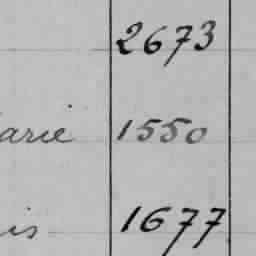 2673
arie 1550
is 1677